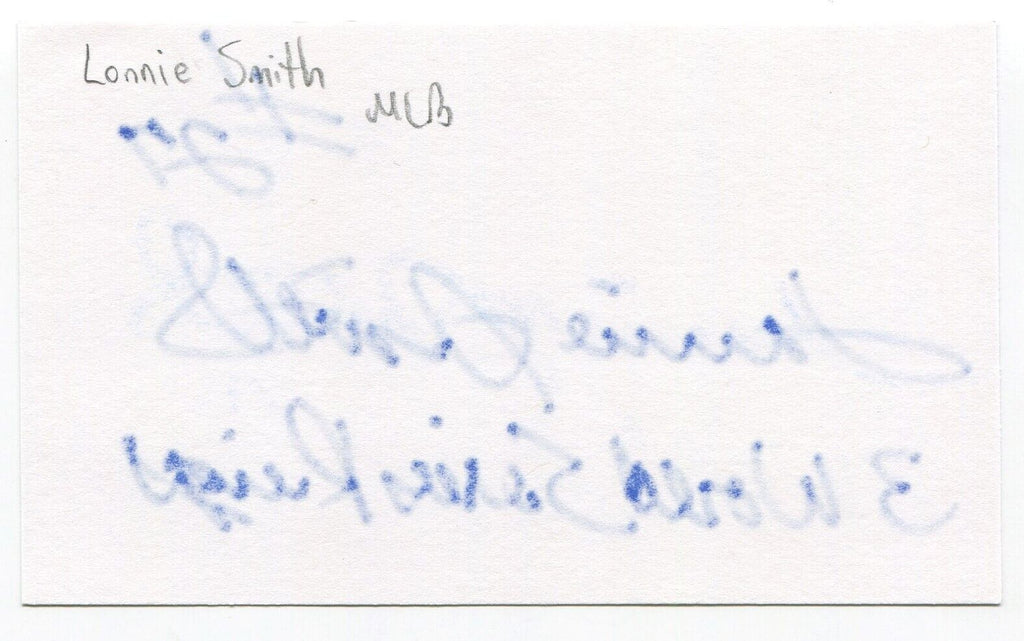 Lonnie Smith
MLB
#27
Lonnie Smith
3 World Series Rings